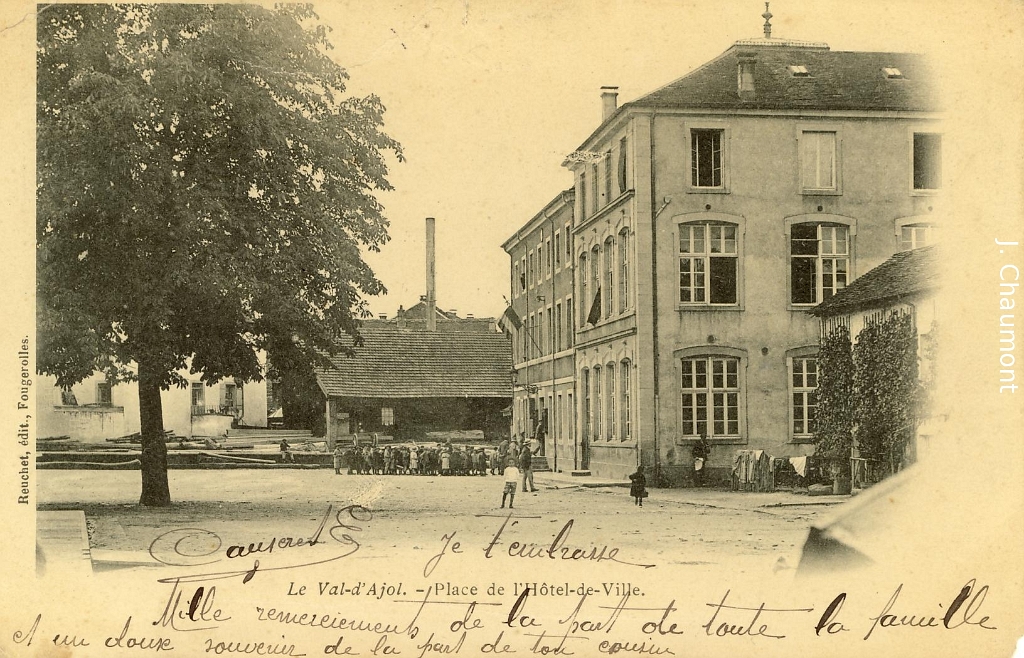 J. Chaumont
Reuchet, édit., Fougerolles.
Je t'embrasse
Le Val-d'Ajol. - Place de l'Hôtel-de-Ville.
Mille remerciements de la part de toute la famille
et un doux souvenir de la part de ton cousin